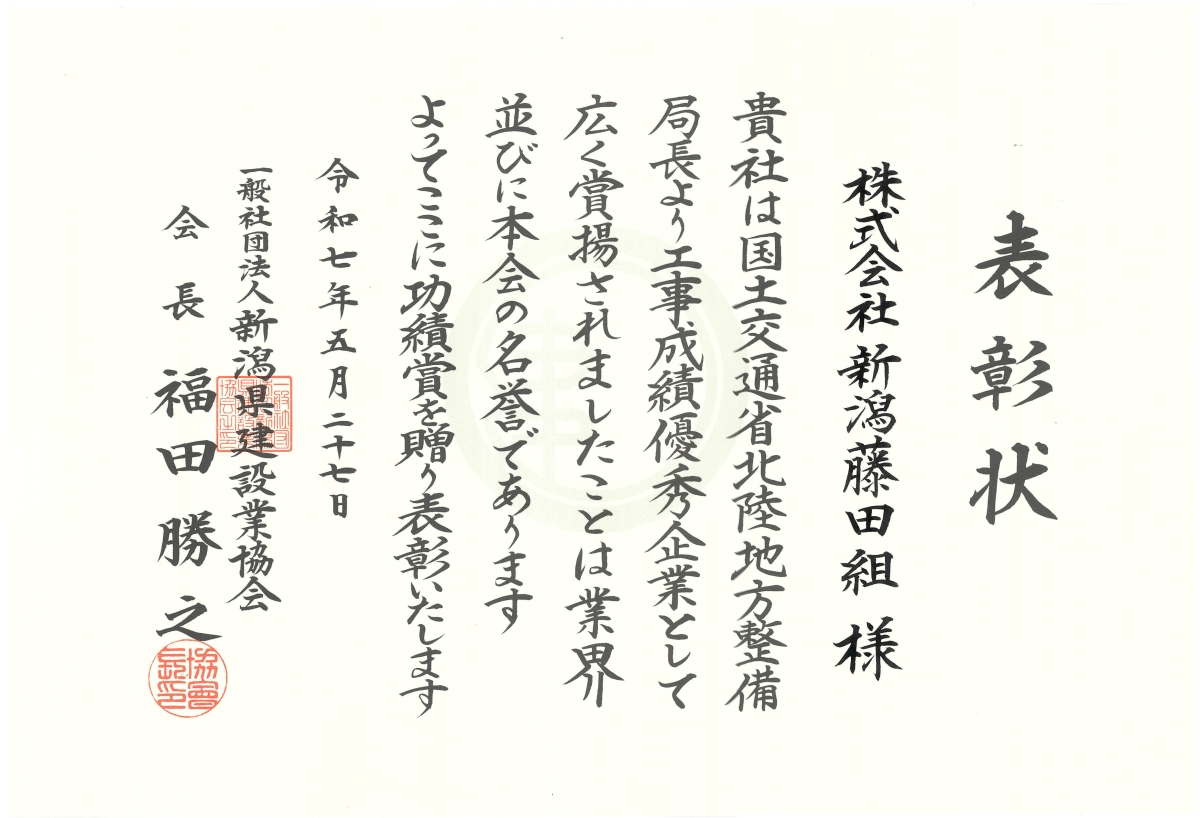 表彰状
株式会社 新潟藤田組 様
貴社は国土交通省北陸地方整備
局長より工事成績優秀企業として
広く賞揚されましたことは業界
並びに本会の名誉であります
よってここに功績賞を贈り表彰いたします
令和七年五月二十七日
一般社団法人新潟県建設業協会
会長 福田勝之
協會長印